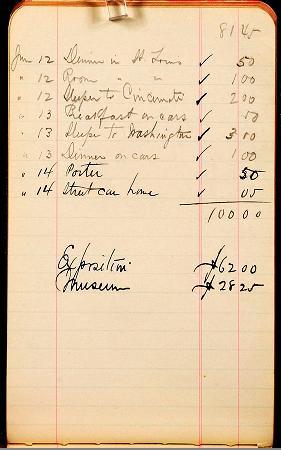 81 45
Jan 12 Dinner in St Louis ✓ 50
" 12 Room " " ✓ 1 00
" 12 Sleeper to Cincinnati ✓ 2 00
" 13 Breakfast on cars ✓ 50
" 13 Sleeper to Washington ✓ 3 00
" 13 Dinner on cars ✓ 1 00
" 14 Porter ✓ 50
" 14 Street car home ✓ 05
100 00
Exposition $62 00
Museum $28 25